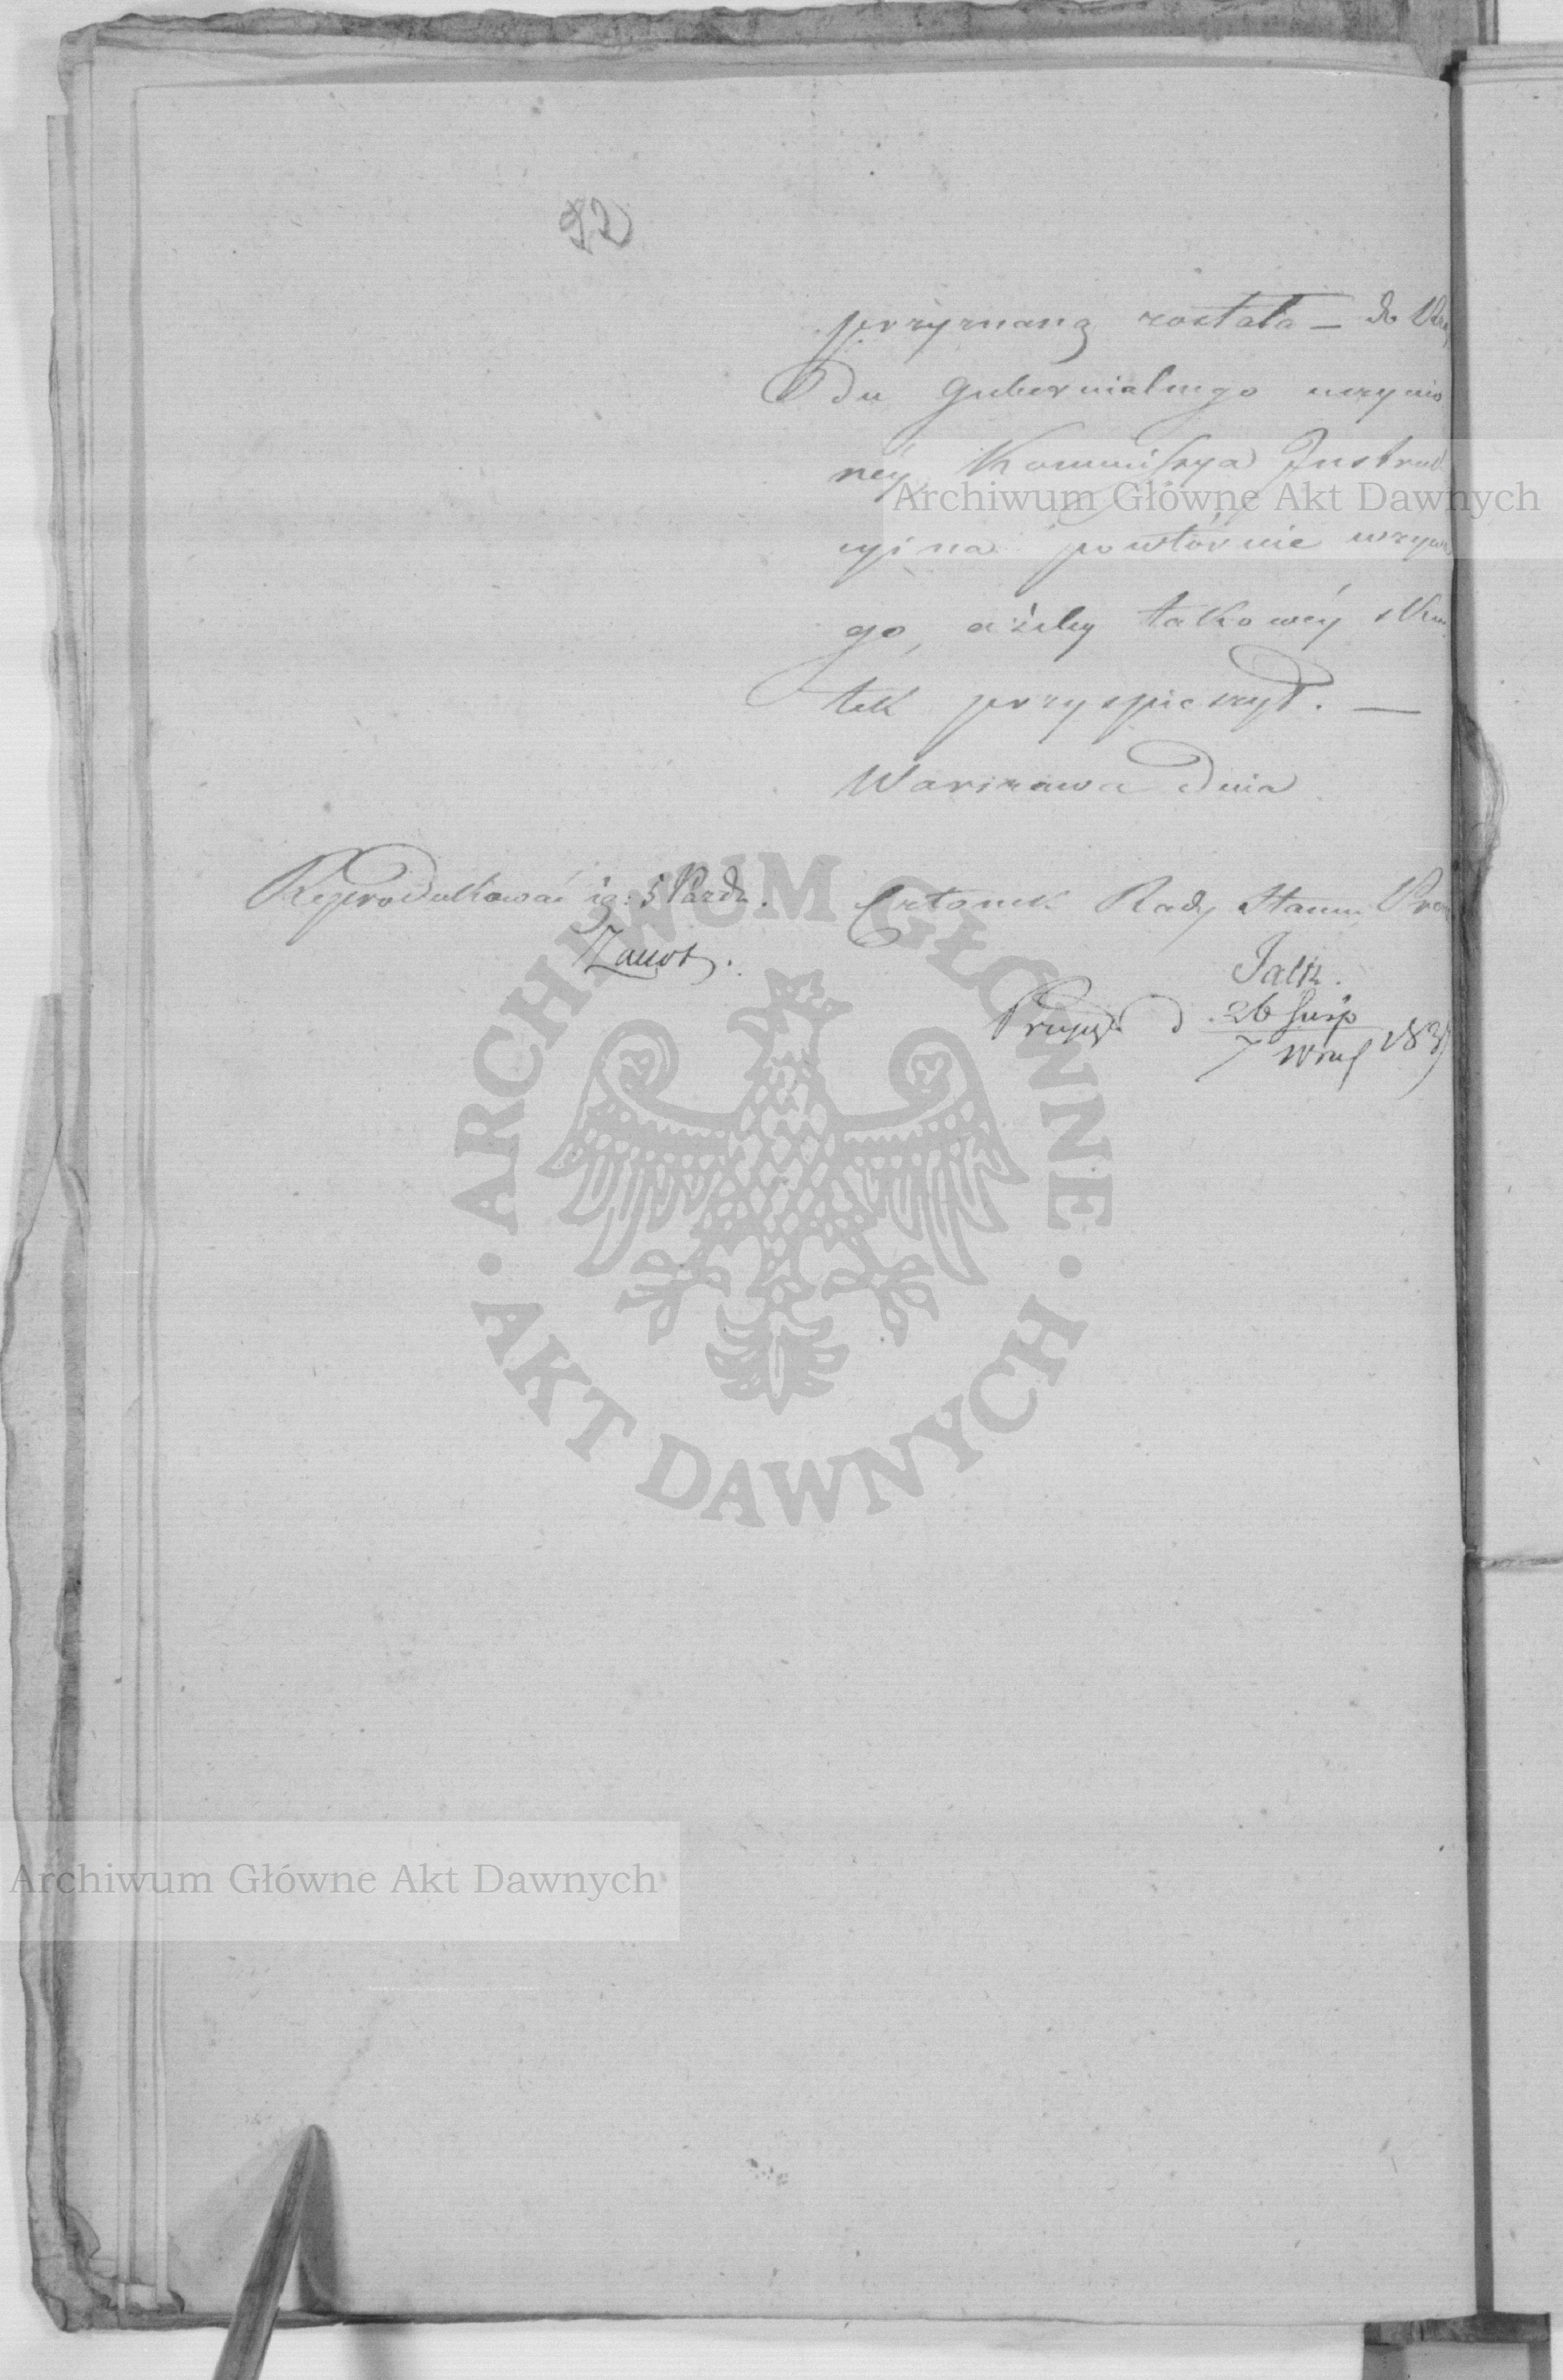 92
przyznaną została — do Urzę
du Gubernialnego uczynio
néy, Kommissya Instruk
cyina powtórnie wzywa
go, ażeby takowéy sku
tek przyspieszył. —
Warszawa dnia
Reprodukować ią: 5 Paźdz.
Członek Rady Stanu, Pre
26 Sierp
7 Wrześ 183
Archiwum Główne Akt Dawnych
ARCHIWUM GŁÓWNE
AKT DAWNYCH
Archiwum Główne Akt Dawnych